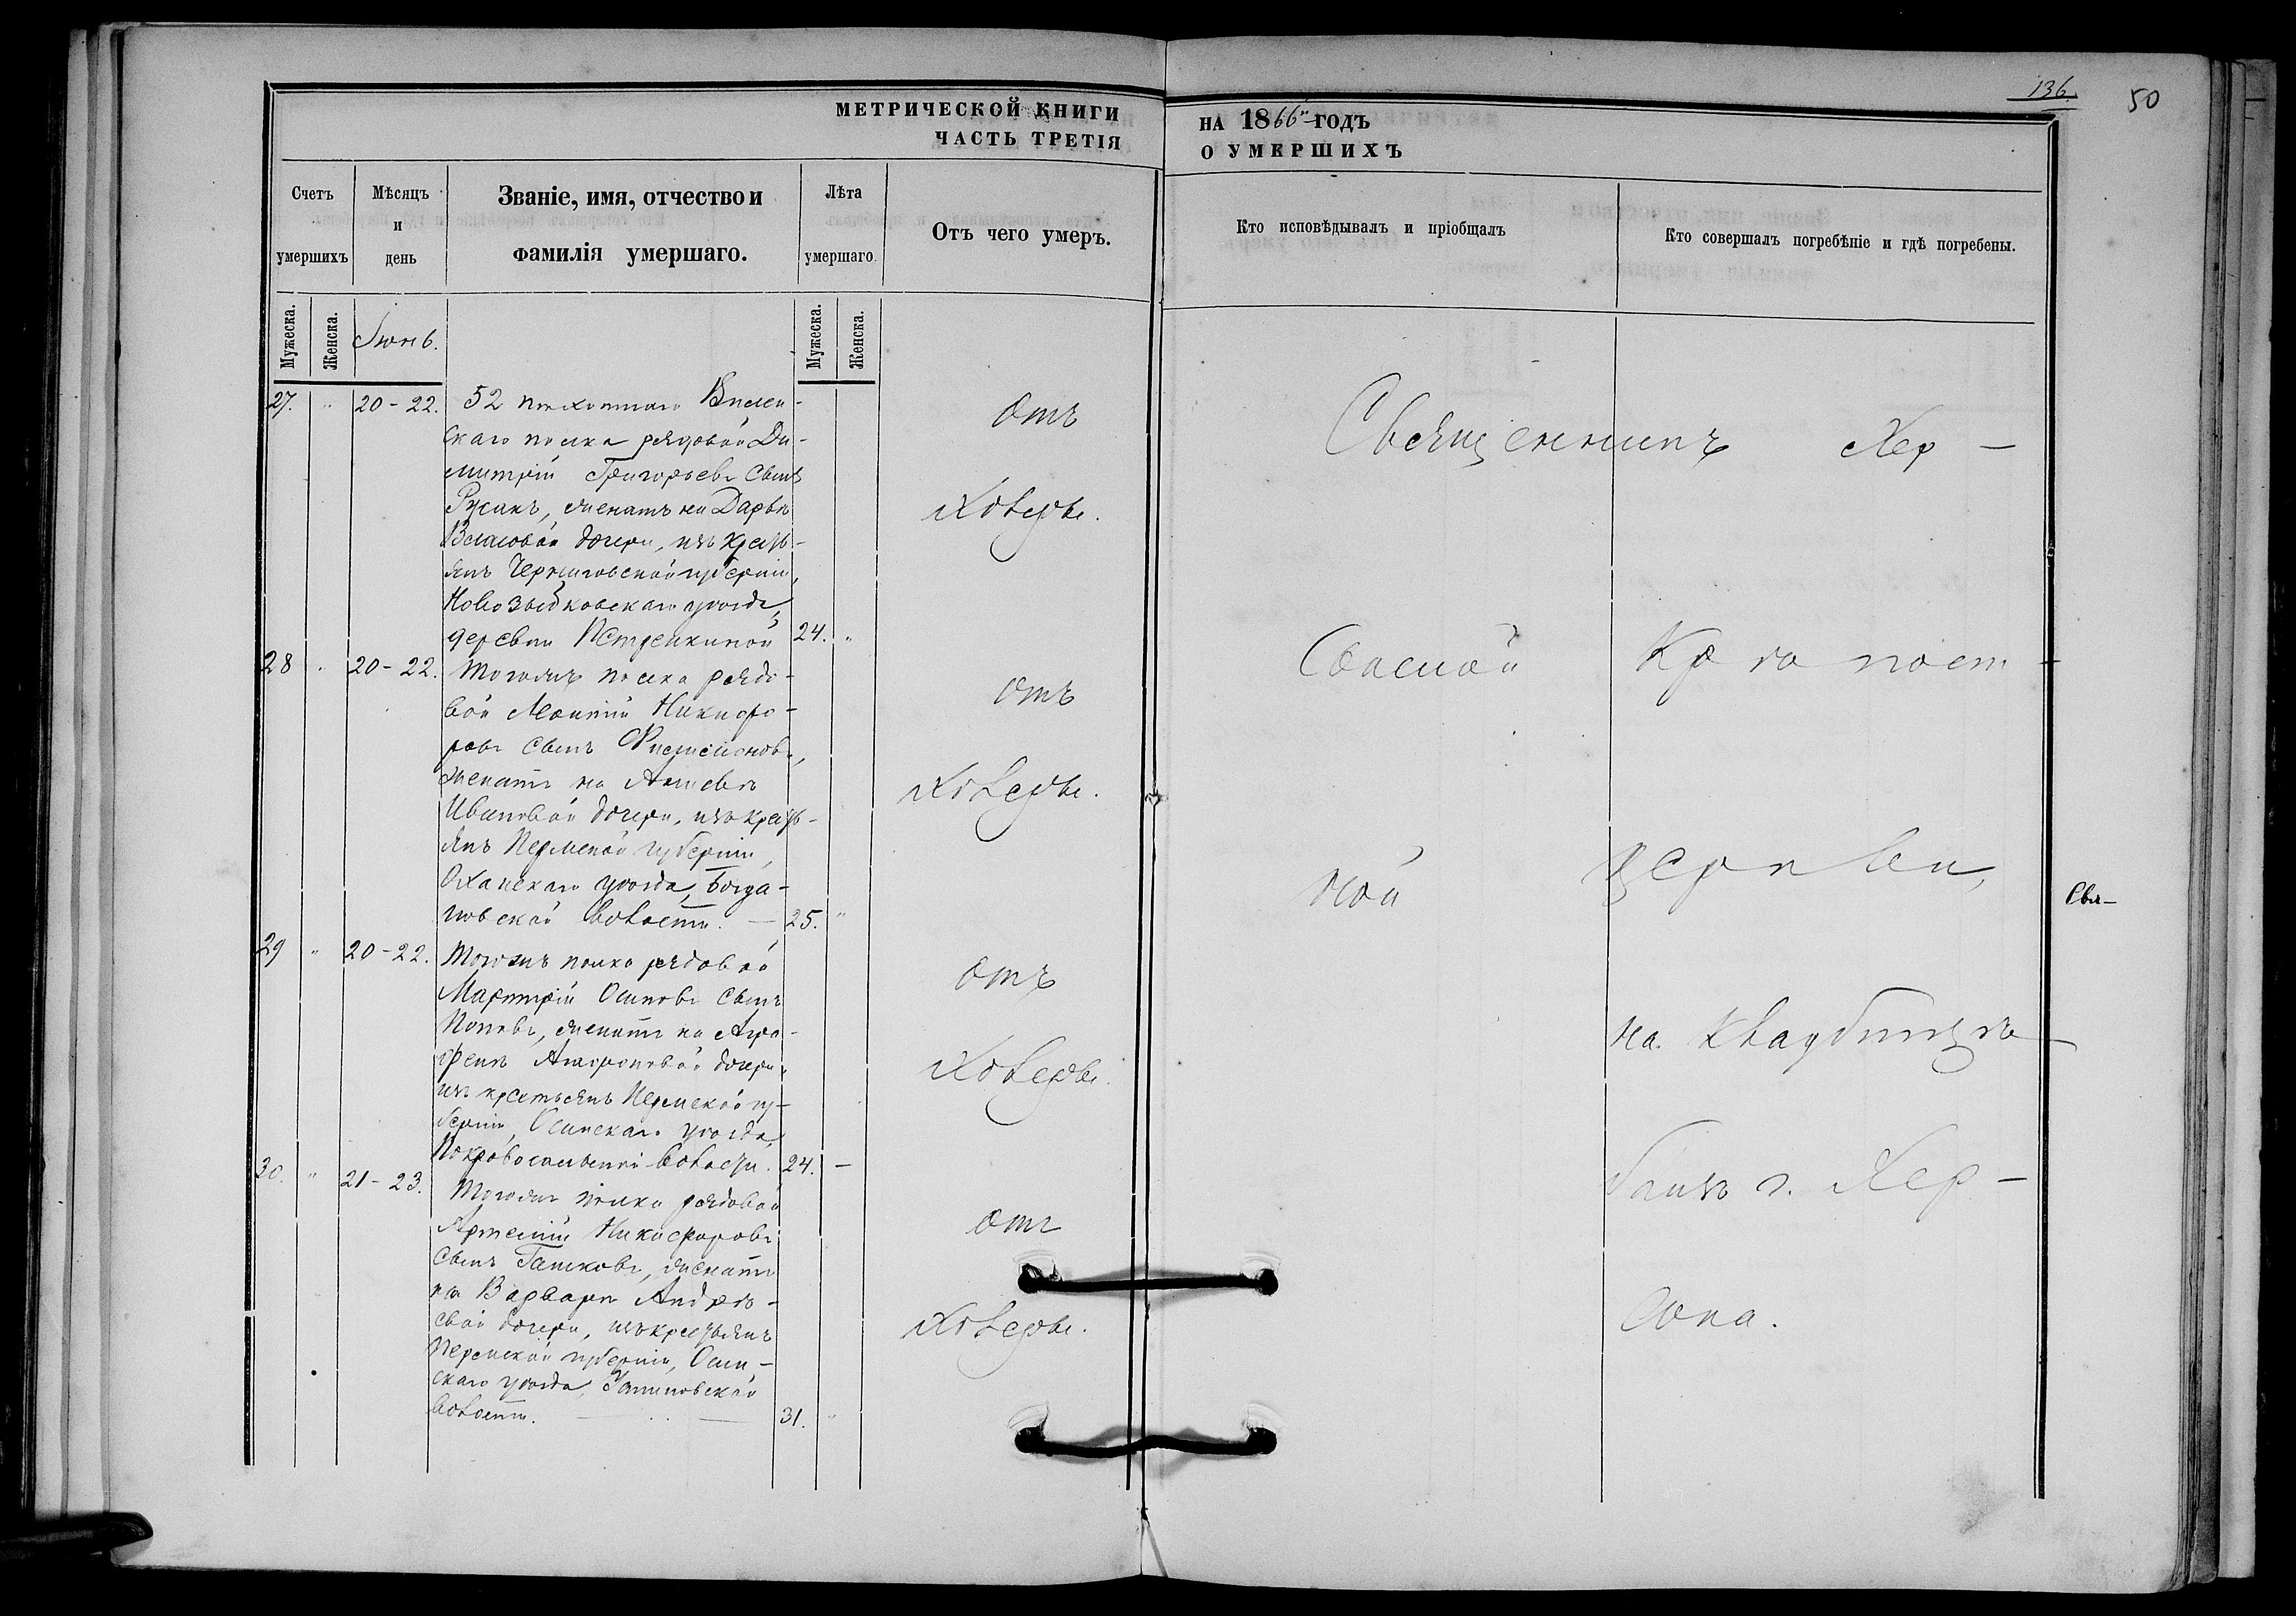 136.
50
МЕТРИЧЕСКОЙ КНИГИ
ЧАСТЬ ТРЕТІЯ
НА 1866 ГОДЪ
О УМЕРШИХЪ
Счетъ
умершихъ
Мѣсяцъ
и
день
Званіе, имя, отчество и
фамилія умершаго.
Лѣта
умершаго.
Отъ чего умеръ.
Кто исповѣдывалъ и пріобщалъ
Кто совершалъ погребѣніе и гдѣ погребены.
Мужеска.
Женска.
Іюнь.
Мужеска.
Женска.
27. " 20-22.
52 пѣхотнаго Вилен-
скаго полка рядовой Ди-
митрій Григорьевъ сынъ
Русакъ, женатъ на Дарьѣ
Власовой дочери, изъ крестъ-
янъ Черниговской губерніи,
Новозыбковскаго уѣзда,
деревни
24. "
отъ
холеры.
28 " 20-22.
Тогожъ полка рядо-
вой Никифо-
ровъ сынъ
женатъ на
Ивановой дочери, изъ кресть-
янъ Пермской губерніи,
Оханскаго уѣзда, Богда-
новской волости. —
25. "
отъ
холеры.
29 " 20-22.
Тогожъ полка рядовой
Осиповъ сынъ
Поповъ, женатъ на Агра-
фенѣ дочери,
изъ крестьянъ Пермской гу-
берніи, Осинскаго уѣзда,
волости.
24. —
отъ
холеры.
30. " 21-23.
Тогожъ полка рядовой
Артемій Никифоровъ
сынъ женатъ
на Варварѣ Андрѣ-
евой дочери, изъ крестьянъ
Пермской губерніи, Осин-
скаго уѣзда,
волости.
31. "
отъ
холеры.
Священникъ Хер-
сонской Крѣпост-
ной церкви,
на кладбищѣ
близъ г. Хер-
сона.
Свя-